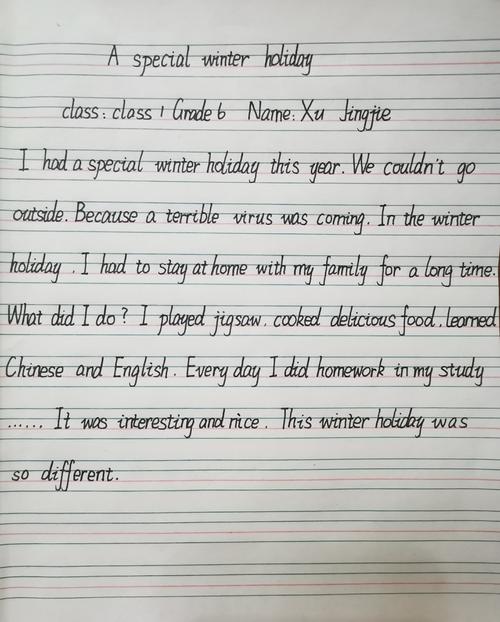 A special winter holiday
class: class 1 Grade 6 Name: Xu Jingjie
I had a special winter holiday this year. We couldn't go
outside. Because a terrible virus was coming. In the winter
holiday. I had to stay at home with my family for a long time.
What did I do? I played jigsaw. cooked delicious food. learned
Chinese and English. Every day I did homework in my study
...... It was interesting and nice. This winter holiday was
so different.